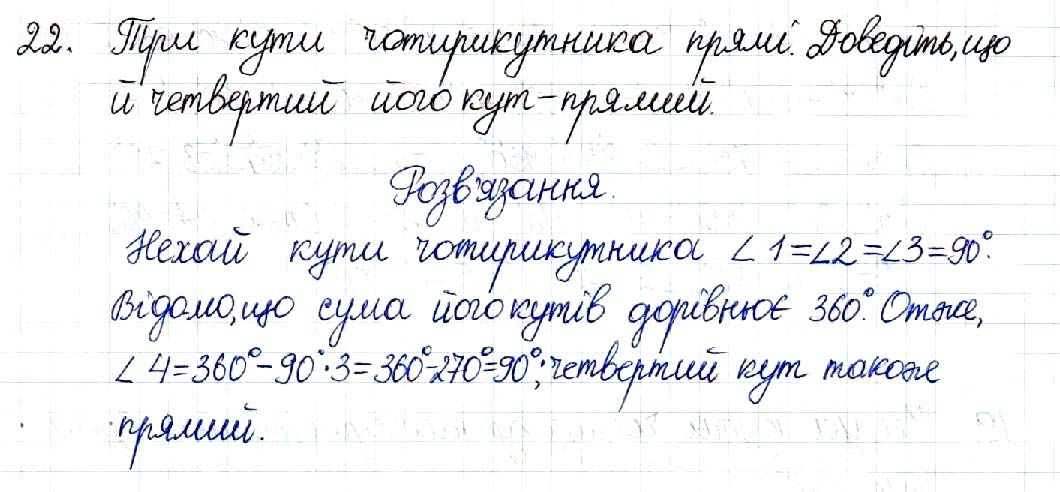 22. Три кути чотирикутника прямі. Доведіть, що
й четвертий його кут – прямий.
Розв'язання.
Нехай кути чотирикутника ∠1=∠2=∠3=90°.
Відомо, що сума його кутів дорівнює 360°. Отже,
∠4=360°-90°·3=360°-270°=90°; четвертий кут також
прямий.